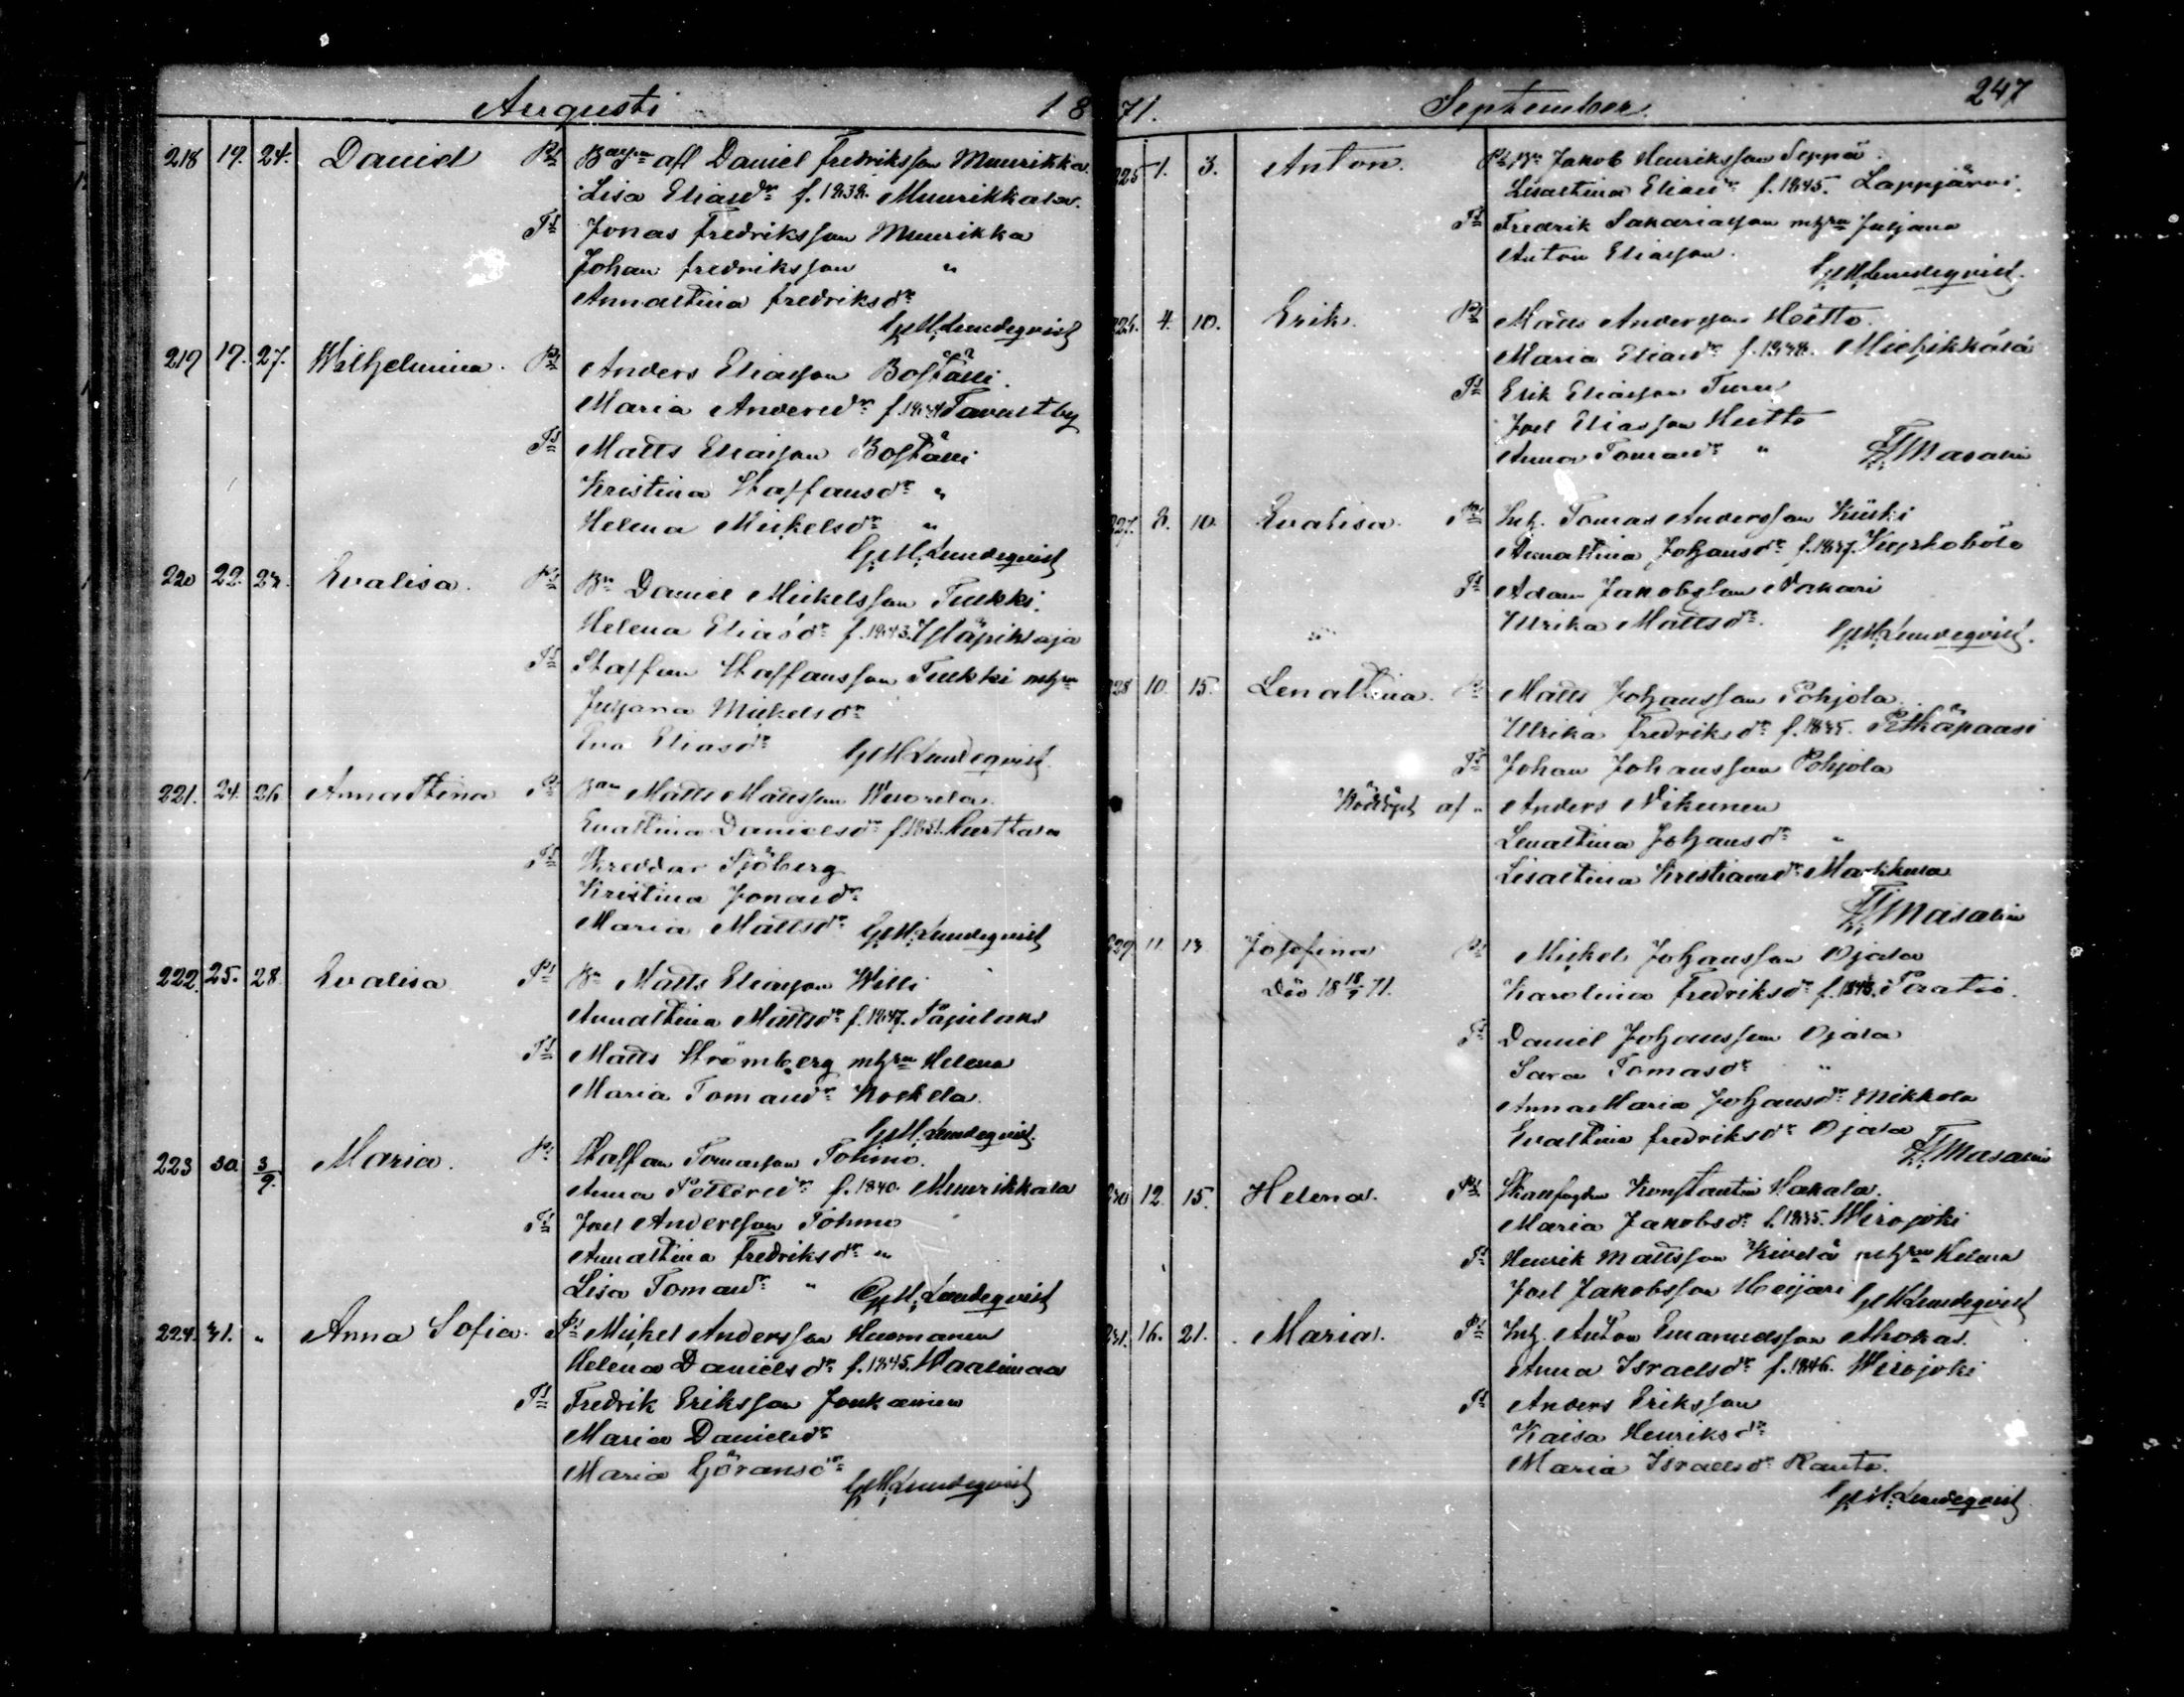 Augusti 18
218 19. 24. David Ps Bdsn afl Daniel Fredriksson Muurikka.
Lisa Eliasdr f. 1838. Muurikkala.
Ts Jonas Fredriksson Muurikka
Johan Fredriksson "
Annastina Fredriksdr
G. M. Lundeqvist
219 19. 27. Wilhelmina. Ps Anders Eliasson
Maria Andersdr Tavastby
Ts Matts Eliasson
Kristina Staffansdr "
Helena Mickelsdr "
G. M. Lundeqvist
220 22. 28. Evalisa. Ps Bn Daniel Mickelsson Tuukki.
Helena Eliasdr f. 1843.
Ts Staffan Staffansson Tuukki mhu
Juljana Mickelsdr
Eva Eliasdr G. M. Lundeqvist.
221. 24. 26 Annastina Ps Matts Mattsson Wuorela.
Evastina Danielsdr f. 1851. Hurttala
Ts Skreddar Sjöberg
Kristina Jonasdr
Maria Mattsdr G. M. Lundeqvist
222. 25. 28. Evalisa Ps Bn Matts Eliasson Willi
Annastina Mattsdr f. 1847.
Ts Matts Strömberg mhu Helena
Maria Tomasdr Kockela.
G. M. Lundeqvist.
223 30 3/9. Maria. Ps Staffan Tomasson Tohmo.
Anna Pettersdr f. 1840. Muurikkala
Ts Joel Andersson Tohmo
Annastina Fredriksdr "
Lisa Tomasdr " G. M. Lundeqvist
224. 31. " Anna Sofia. Ps Mickel Andersson Huomanen
Helena Danielsdr f. 1845. Waalimaa
Ts Fredrik Eriksson Joukainen
Maria Danielsdr
Maria Göransdr
G. M. Lundeqvist
71. September. 247
225 1. 3. Anton. Ps Bn Jakob Henriksson Seppä.
Lisastina Eliasdr f. 1845. Lappjärvi.
Ts Fredrik Sakariasson mhu Juljana
Anton Eliasson.
G. M. Lundeqvist.
226. 4. 10. Erik. Ps Matts Andersson Heitto.
Maria Eliasdr Miehikkälä
Ts Erik Eliasson Turu
Joel Eliasson Heitto
Anna Tomasdr " Masalin
227. 8. 10. Evalisa. Ps Inh. Tomas Andersson Kurki
Annastina Johansdr f. 1837.
Ts Adam Jakobsson
Ulrika Mattsdr. G. M. Lundeqvist.
228 10. 15. Lenastina. Ps Matts Johansson Pohjola.
Ulrika Fredriksdr f. 1835. Pitkäpaasi
Ts Johan Johansson Pohjola
Nöddöpt af " Anders Nikunen
Lenastina Johansdr "
Lisastina Kristiansdr Markkula
Masalin
229 11. 13 Josefina Ps Mickel Johansson Ojala
Död 18 18/9 71. Karolina Fredriksdr f. 1843. Paatio.
Ts Daniel Johansson Ojala
Sara Tomasdr "
Anna Maria Johansdr Mikkola
Evastina Fredriksdr Ojala
Masalin
230 12. 15. Helena. Ps Konstantin Hakala.
Maria Jakobsdr f. 1835. Wirojoki
Ts Henrik Mattsson mhu Helena
Joel Jakobsson Heijari G. M. Lundeqvist
231. 16. 21. Maria. Ps Inh. Anton Emanuelsson Ahokas.
Anna Israelsdr f. 1846. Wirojoki
Ts Anders Eriksson
Kaisa Henriksdr
Maria Israelsdr Rautio.
G. M. Lundeqvist.